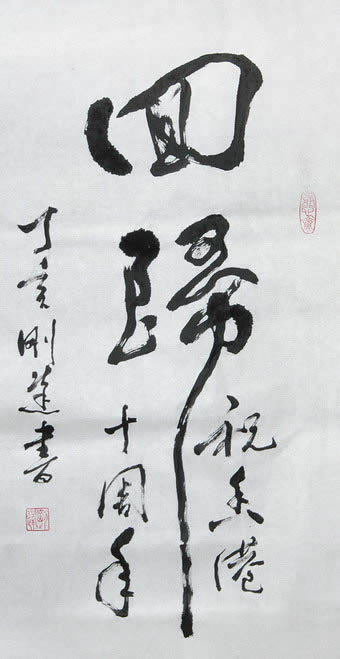 回歸
祝香港
十周年
丁亥刚書